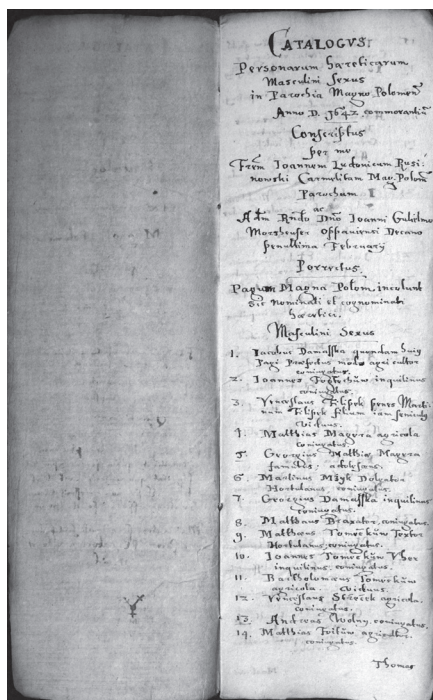 CATALOGVS
Personarum hæreticarum
Masculini Sexus
in Parochia Magno Polomen̄
Anno D. 1642 commorantiū
Conscriptus
per me
Frēm Joannem Ludouicum Rusi:
nowski Carmelitam Mag. Polom̄
Parochum
ac
Adm Rndo Dnō Joanni Gulielmo
Oppauiensi Decano
penultima February
Porrectus
Pagum Magna Polom, incolunt
sic nominati et cognominati
hæretici.
Masculini Sexus
1. Iacobus Damasska quondam huiꝰ
Pagi Præfectus modo agricultor
coniugatus.
2. Ioannes inquilinus
coniugatus.
3. Venceslaus Filipek penes Marti-
num Filipek filium iam
viduus.
4. Matthias Magera agricola
coniugatus.
5. Georgius Matthiæ Magera
adolescens.
6. Martinus
Hortulanus coniugatus.
7. Georgius Damasska inquilinus
coniugatus.
8. Matthæus Braxator, coniugatus.
9. Matthæus Tomeckuw Textor
Hortulanus, coniugatus.
10. Ioannes Tomeckuw
inquilinus. coniugatus.
11. Bartholomæus Tomeckuw
agricola. viduus.
12. Venceslaus agricola.
coniugatus.
13. Andreas Wolny. coniugatus.
14. Matthias agricultor.
coniugatus.
Thomas